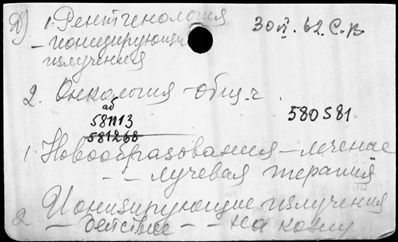 Д) 1. Рентгенология 30 VI. 62. С.В
- ионизирующие
излучения
2. Онкология общ. ч.
аб
58113 580581
581268
1. Новообразования - лечение
- - лучевая терапия
2 Ионизирующие излучения
- действие - - на кожу